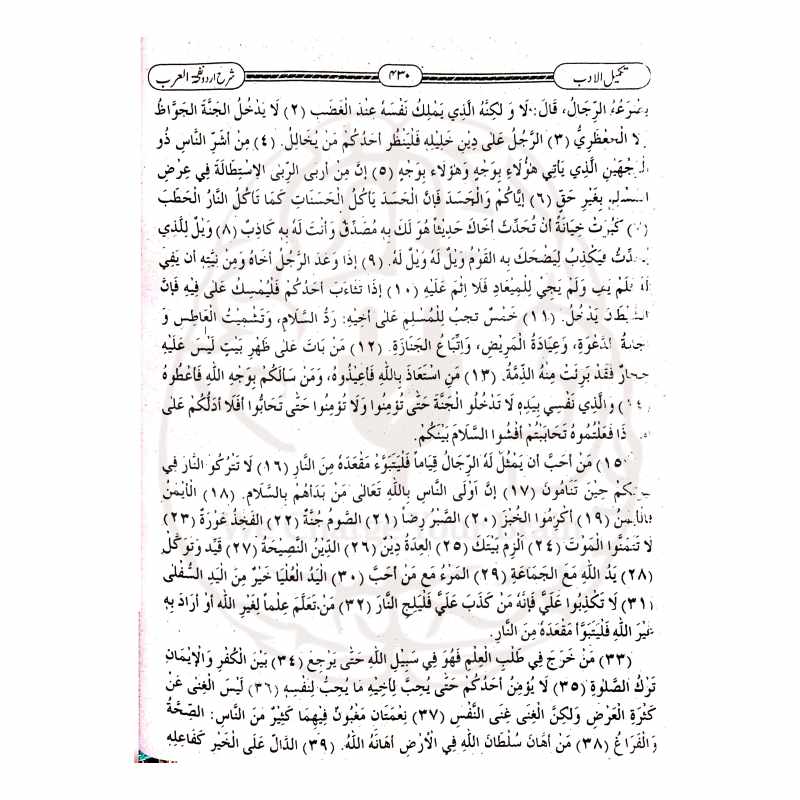 تکمیل الادب ۴۳۰ شرح اردو نفحۃ العرب
يصرعُهُ الرّجَالُ، قَالَ: لَا وَ لكِنَّهُ الَّذِي يَمْلِكُ نَفْسَهُ عِندَ الْغَضَبِ (۲) لَا يَدْخُلُ الجَنَّةَ الجَوَّاظُ
لا الْجَعْظَرِيُّ (۳) الرَّجُلُ عَلىٰ دِيْنِ خَلِيْلِهِ فَلْيَنْظُرْ أحَدُكُمْ مَنْ يُخَالِلْ. (٤) مِنْ أشَرِّ النَّاسِ ذُو
الوَجْهَيْنِ الَّذِي يَأتِي هٰؤُلَاءِ بِوَجْهٍ وَهٰؤلَاء بِوَجْهٍ (۵) إنَّ مِن أربى الرِّبٰى الاِسْتِطَالَةَ فِي عِرْضِ
المسْلِمِ بِغَيْرِ حَقٍّ (٦) إيَّاكُمْ وَالْحَسَدَ فَإِنَّ الْحَسَدَ يَأكُلُ الْحَسَنَاتِ كَمَا تَأكُلُ النَّارُ الْحَطَبَ
كَبُرَتْ خِيَانَةً أنْ تُحَدِّثَ أخَاكَ حَدِيْثاً هُوَ لَكَ بِهِ مُصَدِّقٌ وَأنْتَ لَهُ بِهِ كَاذِبٌ (۸) وَيْلٌ لِلَّذِي
يُحَدِّثُ فَيَكْذِبُ لِيَضْحَكَ بِهِ القَوْمُ وَيْلٌ لَهُ وَيْلٌ لَهُ. (۹) إذَا وَعَدَ الرَّجُلُ أخَاهُ وَمِنْ نِيَّتِهِ أن يَفِيَ
لَهُ فَلَمْ يَفِ وَلَمْ يَجِيْ لِلْمِيْعَادِ فَلَا إثْمَ عَلَيْهِ (۱۰) إذَا تَثَاءَبَ أحَدُكُمْ فَلْيُمْسِكْ عَلىٰ فِيْهِ فَإنَّ
الشَّيْطَانَ يَدْخُلُ. (۱۱) خَمْسٌ تَجِبُ لِلْمُسْلِمِ عَلىٰ أخِيْهِ: رَدُّ السَّلَامِ، وَتَشْمِيْتُ الْعَاطِسِ وَ
إجابَةُ الدَّعْوَةِ، وَعِيَادَةُ الْمَرِيْضِ، وَاتِّبَاعُ الْجَنَازَةِ. (۱۲) مَنْ بَاتَ عَلىٰ ظَهْرِ بَيْتٍ لَيْسَ عَلَيْهِ
حِجَارٌ فَقَدْ بَرِئَتْ مِنْهُ الذِّمَّةُ. (۱۳) مَنِ اسْتَعَاذَ بِاللهِ فَأعِيْذُوهُ، وَمَنْ سَألَكُمْ بِوَجْهِ اللهِ فَأعْطُوهُ
والَّذِي نَفْسِي بِيَدِهِ لَا تَدْخُلُو الْجَنَّةَ حَتّٰى تُؤمِنُوا وَلَا تُوْمِنُوا حَتّٰى تَحَابُّوا أفَلَا أدُلُّكُمْ عَلىٰ
إذَا فَعَلْتُمُوهُ تَحَابَبْتُمْ أفْشُوا السَّلَامَ بَيْنَكُمْ.
(۱۵) مَنْ أحَبَّ أن يَمْثُلَ لَهُ الرِّجَالُ قِيَاماً فَلْيَتَبَوَّءْ مَقْعَدَهُ مِنَ النَّارِ (۱٦) لَا تَتْرُكُو النَّارَ فِي
بُيُوتِكُمْ حِيْنَ تَنَامُونَ (۱۷) إنَّ أوْلَى النَّاسِ بِاللهِ تَعَالىٰ مَنْ بَدَأهُمْ بِالسَّلَامِ. (۱۸) الْأيْمَنُ
فَالْأيْمَنُ (۱۹) أكْرِمُوا الْخُبْزَ (۲۰) الصَّبْرُ رِضاً (۲۱) الصَّومُ جُنَّةٌ (۲۲) الفَخِذُ عَوْرَةٌ (۲۳)
لَا تَتَمَنَّوا الْمَوْتَ (۲٤) الْزِمْ بَيْتَكَ (۲۵) العِدَةُ دِيْنٌ (۲٦) الدِّيْنُ النَّصِيْحَةُ (۲۷) قَيِّدْ وَتَوَكَّلْ
(۲۸) يَدُ اللهِ مَعَ الْجَمَاعَةِ (۲۹) الْمَرْءُ مَعَ مَنْ أحَبَّ (۳۰) الْيَدُ الْعُلْيَا خَيْرٌ مِنَ الْيَدِ السُّفْلىٰ
(۳۱) لَا تَكْذِبُوا عَلَيَّ فَإنَّهُ مَنْ كَذَبَ عَلَيَّ فَلْيَلِجِ النَّارَ (۳۲) مَنْ تَعَلَّمَ عِلْماً لِغَيْرِ اللهِ أوْ أرَادَ بِهِ
غَيْرَ اللهِ فَلْيَتَبَوَّأ مَقْعَدَهُ مِنَ النَّارِ.
(۳۳) مَنْ خَرَجَ فِي طَلَبِ الْعِلْمِ فَهُوَ فِي سَبِيْلِ اللهِ حَتّٰى يَرْجِعَ (۳٤) بَيْنَ الْكُفْرِ وَالْإيْمَانِ
تَرْكُ الصَّلوٰةِ (۳۵) لَا يُؤمِنُ أحَدُكُمْ حَتّٰى يُحِبَّ لِأخِيْهِ مَا يُحِبُّ لِنَفْسِهِ (۳٦) لَيْسَ الْغِنىٰ عَنْ
كَثْرَةِ الْعَرَضِ وَلٰكِنَّ الْغِنىٰ غِنَى النَّفْسِ (۳۷) نِعْمَتَانِ مَغْبُونٌ فِيْهِمَا كَثِيْرٌ مِنَ النَّاسِ: الصِّحَّةُ
وَالْفَرَاغُ (۳۸) مَنْ أهَانَ سُلْطَانَ اللهِ فِي الْأرْضِ أهَانَهُ اللهُ. (۳۹) الدَّالُّ عَلَى الْخَيْرِ كَفَاعِلِهِ